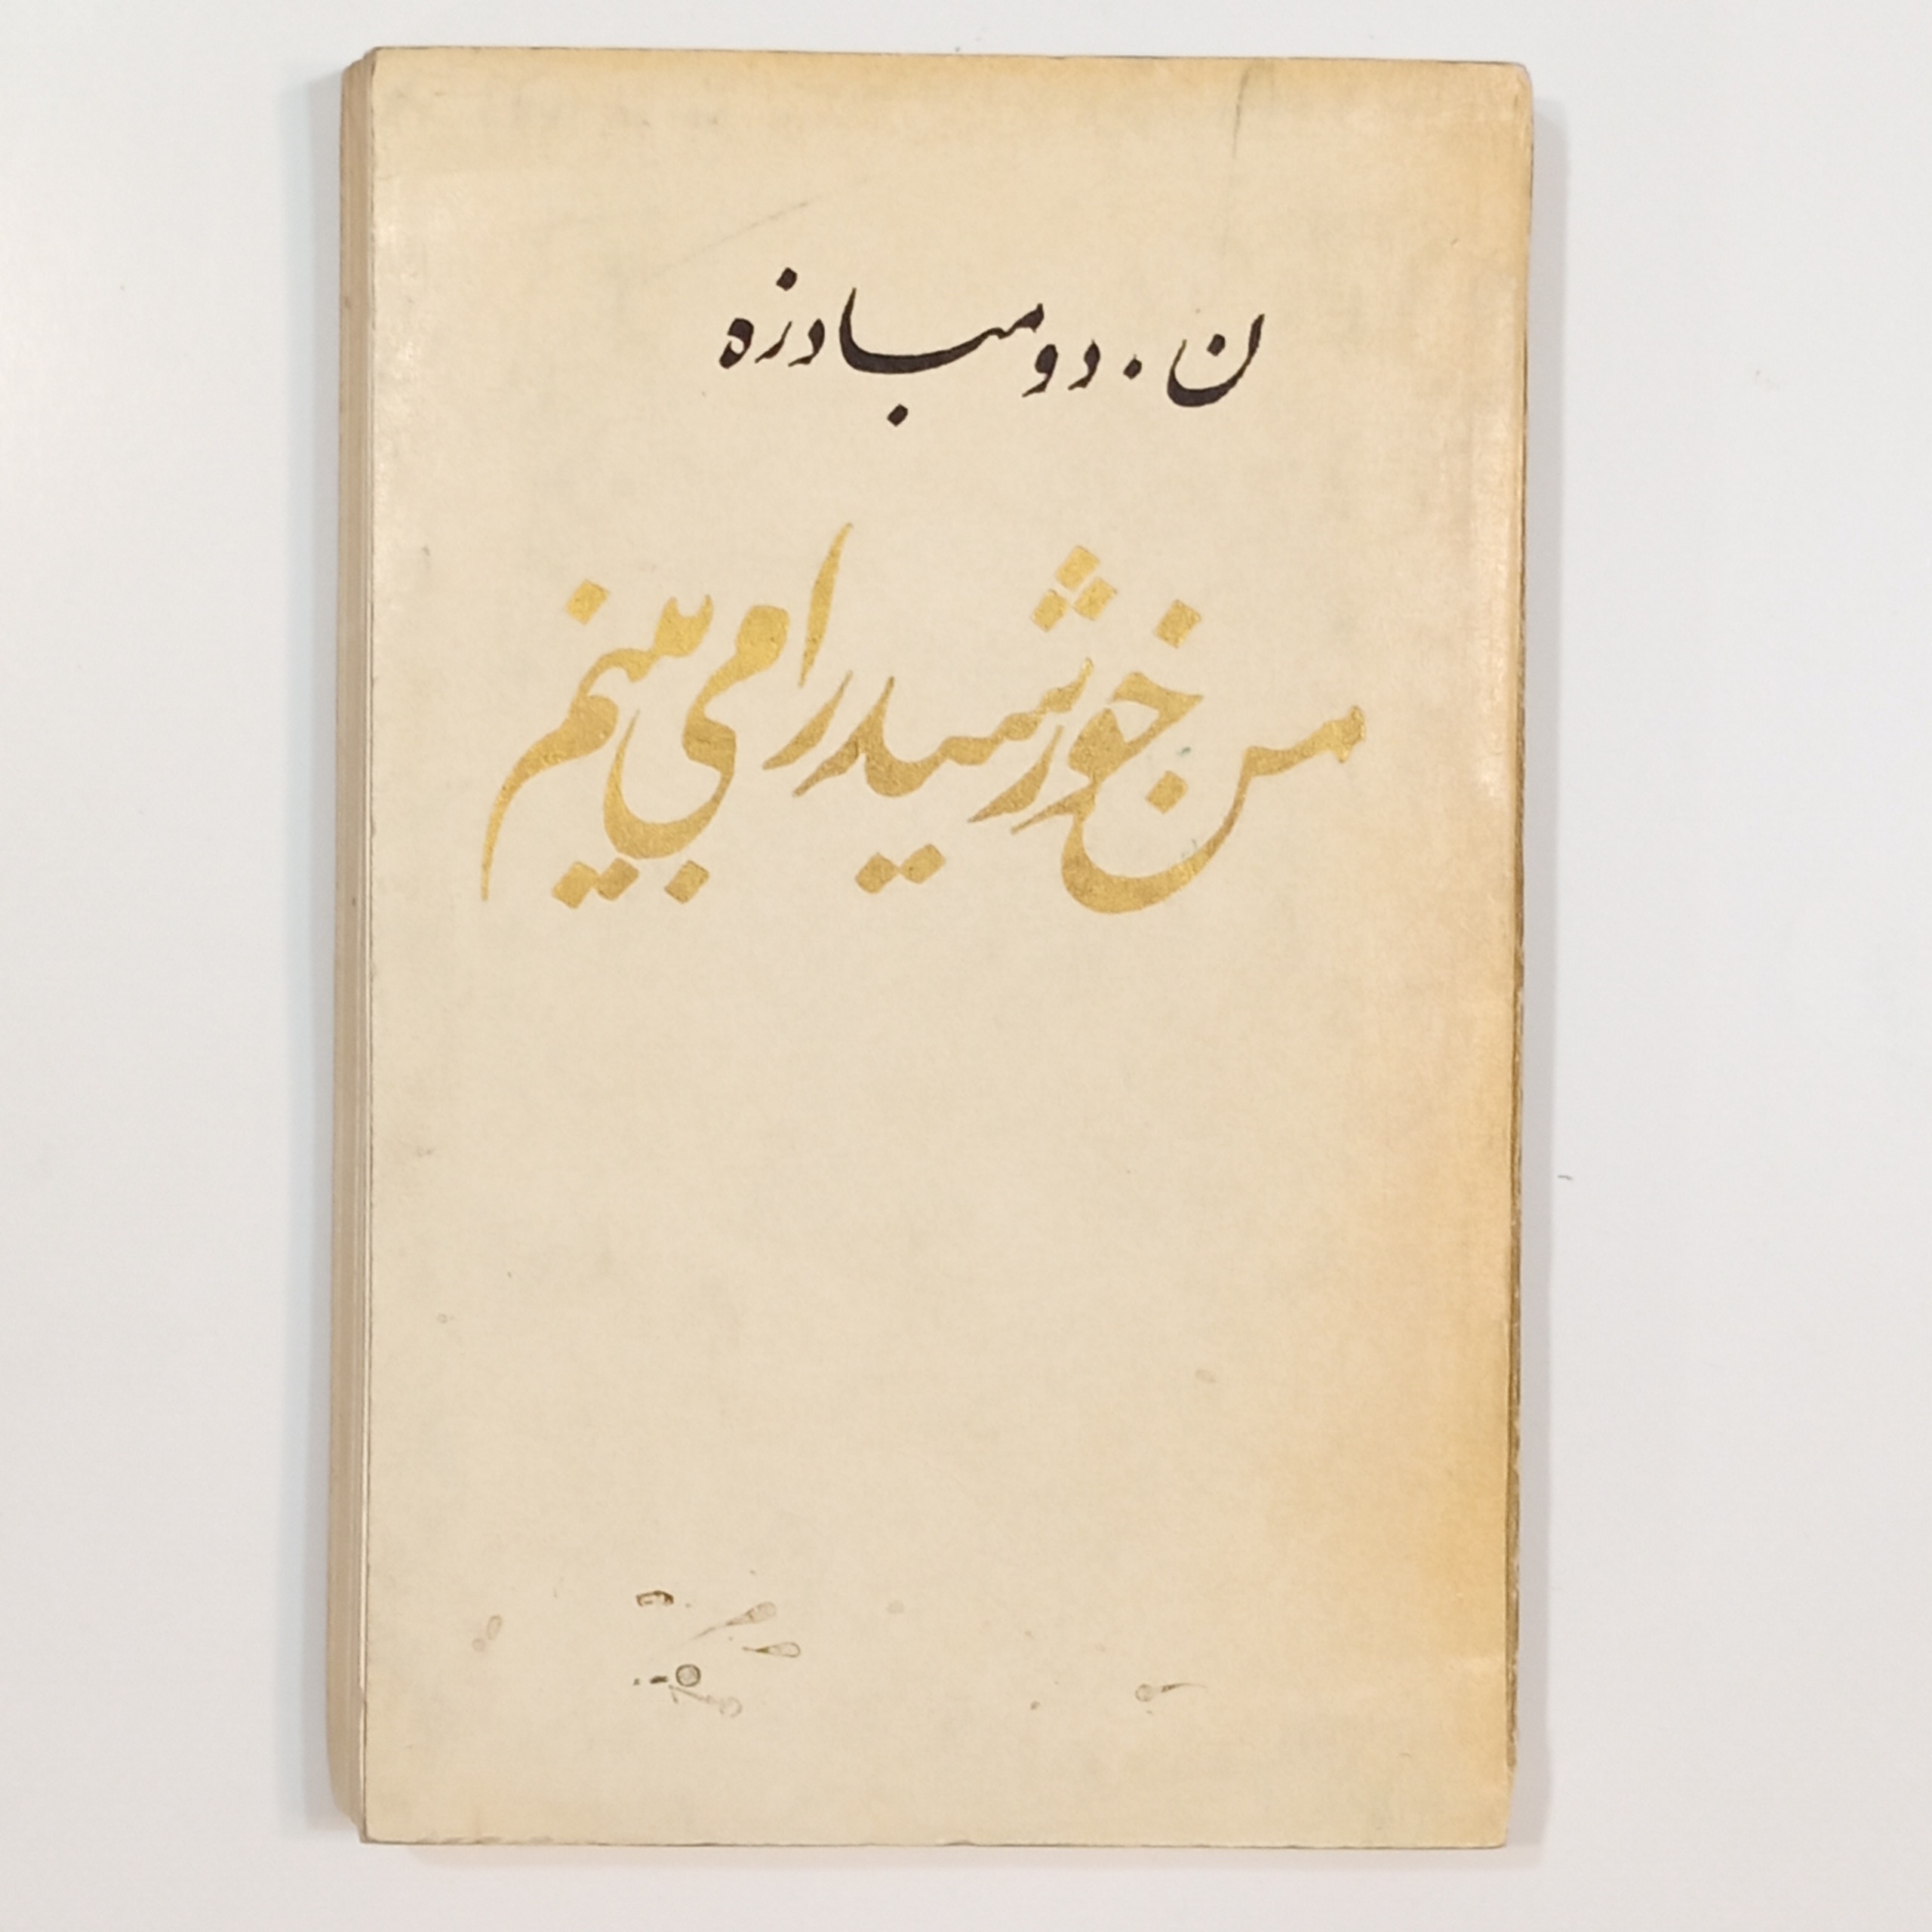 ن . دومبادزه
من خورشید را می بینم